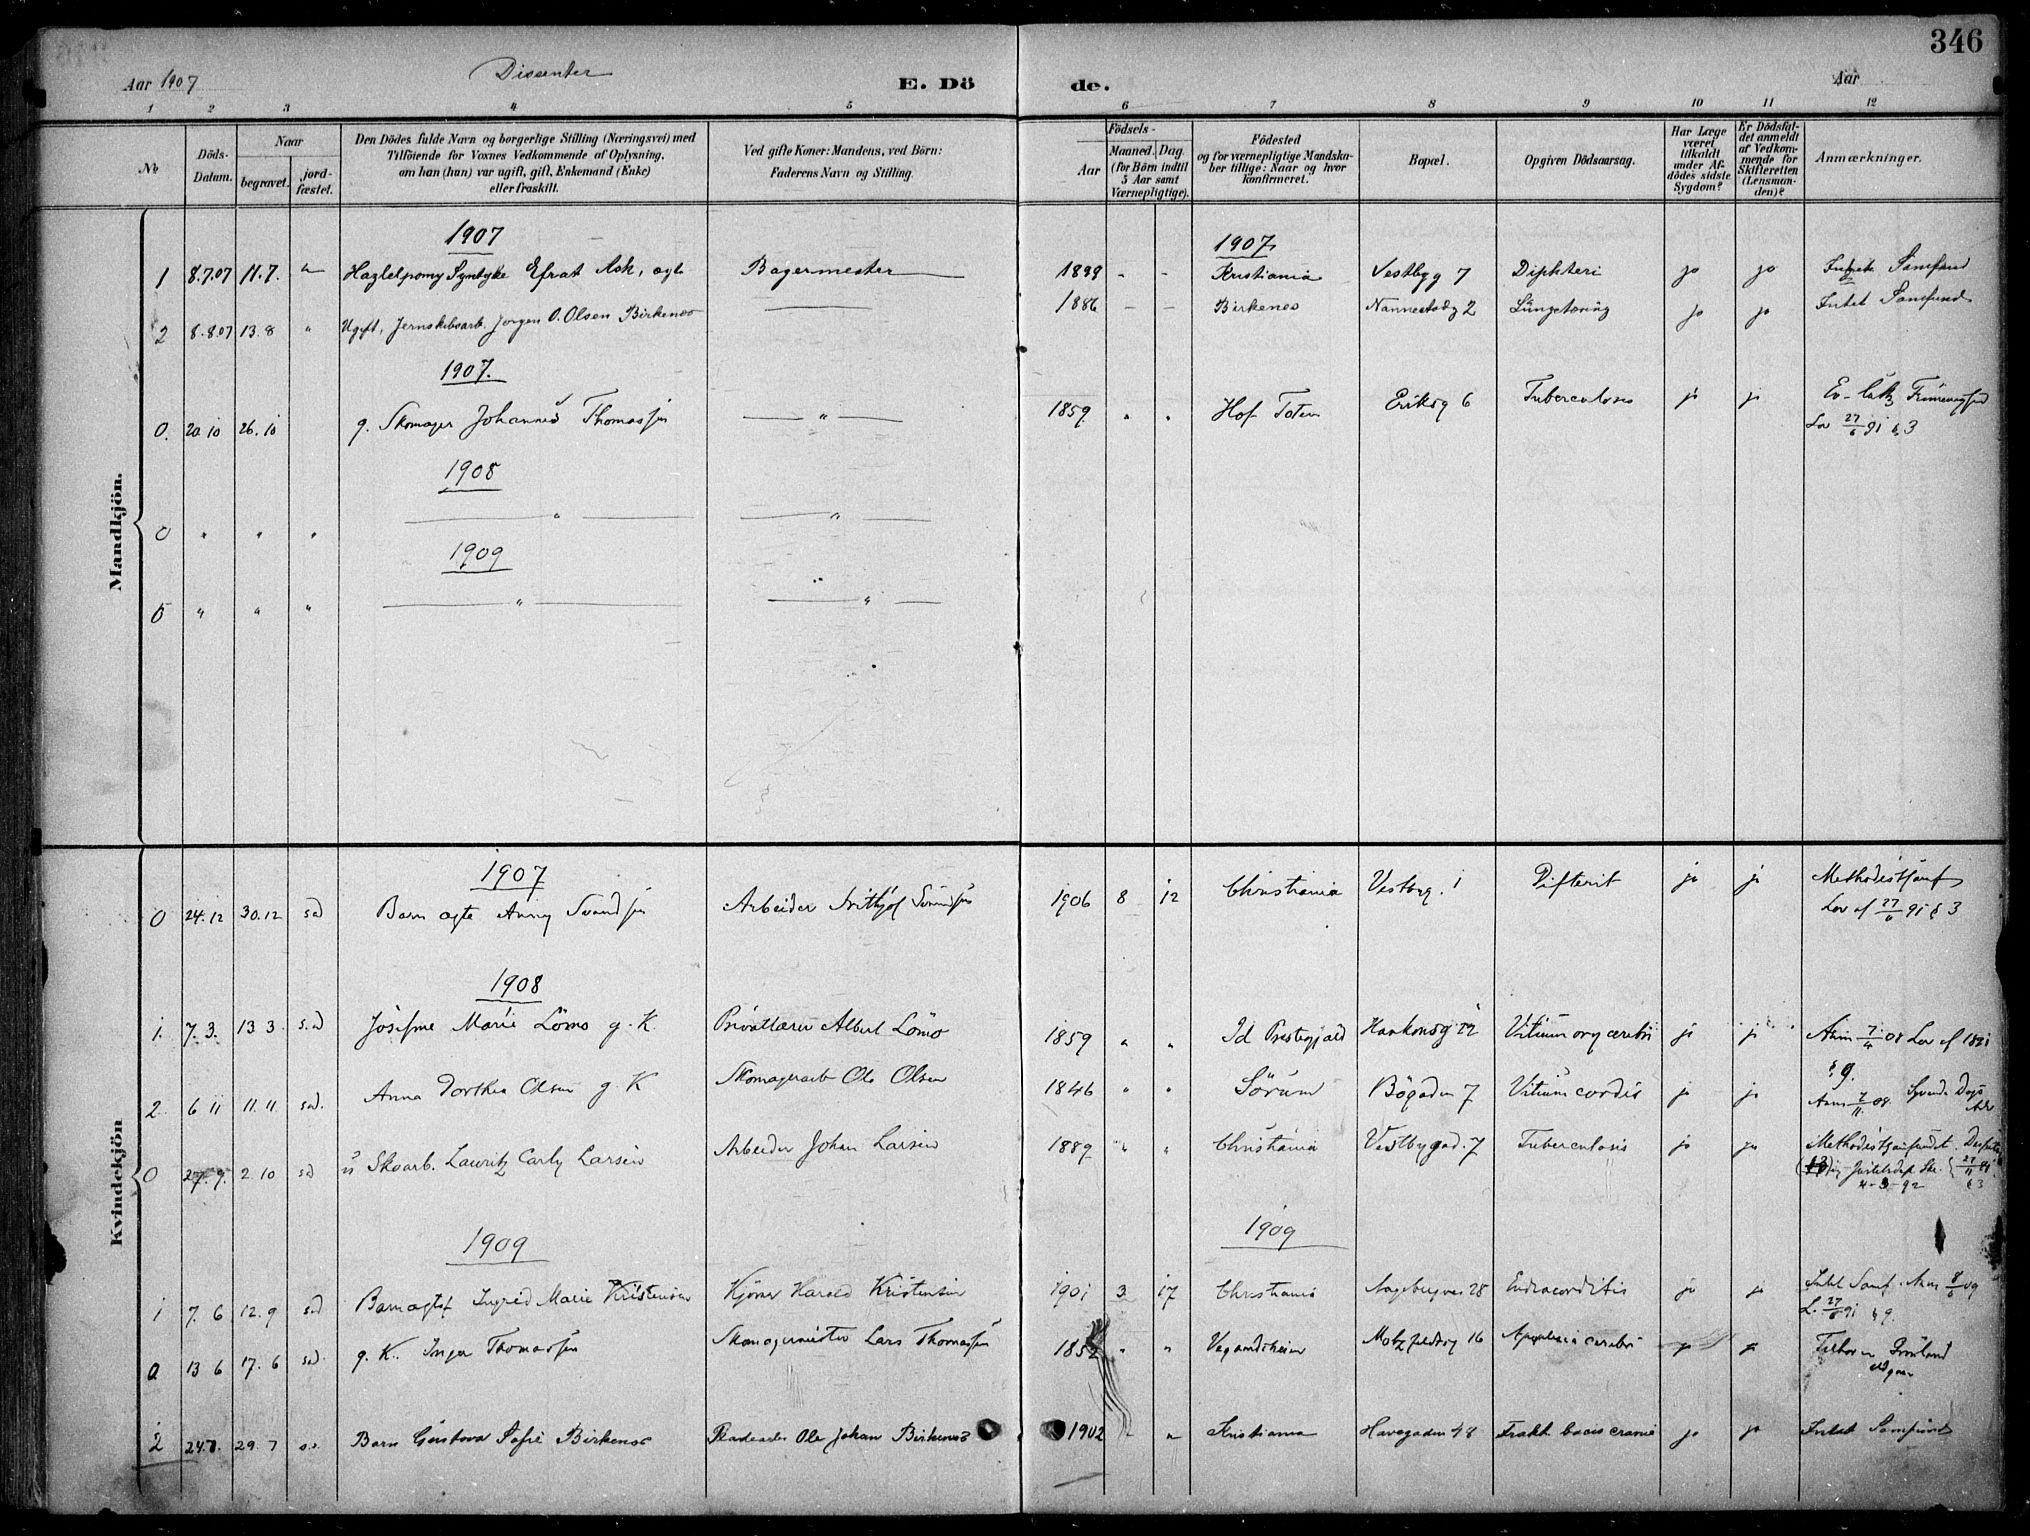 346
Aar 1907 Dissenter E. Dö de. Aar
1 2 3 4 5 6 7 8 9 10 11 12
No
Döds-Datum.
Naar
begravet.
jord-fæstet.
Den Dödes fulde Navn og borgerlige Stilling (Næringsvei) med
Tilföiende for Voxnes Vedkommende af Oplysning,
om han (hun) var ugift, gift, Enkemand (Enke)
eller fraskilt.
Ved gifte Koner: Mandens, ved Börn:
Faderens Navn og Stilling.
Födsels-
Aar
Maaned. Dag.
(for Börn indtil
5 Aar samt
Værnepligtige).
Födested
og for værnepligtige Mandska-
ber tillige: Naar og hvor
konfirmeret.
Bopæl.
Opgiven Dödsaarsag.
Har Læge
været
tilkaldt
under Af-
dödes sidste
Sygdom?
Er Dödsfal-
det anmeldt
af Vedkom-
mende for
Skifteretten
(Lensman-
den)?
Anmærkninger.
Mandkjön.
1907 1907
1 8.7.07 11.7. " Hazlelpomy Syntyke Efrat Ask, ægte Bagermester 1899 - - Kristiania Vestbyg 7 Diphteri jo jo Intet Samfund
2 8.8.07 13.8 " Ugift, Jernskibsarb. Jørgen O. Olsen Birkenes 1886 - - Birkenes Nannestadg 2 Lungetæring jo jo Intet Samfund
1907.
0. 20 10 26.10 g. Skomager Johannes Thomassen " 1859 " " Hof Toten Eriksg 6 Tuberculosis ja ja Ev-luth Frimenighed
Lov 27/6 91 § 3
1908
0 " " " " "
1909
0 " " " " "
Kvindekjön
1907
0 24.12 30.12 sad Barn ægte Anny Svendsen Arbeider Frithjof Svendsen 1906 8 12 Christiania Vestbyg. 1 Difterit ja ja Methodistsamf
Lov af 27/6 91 § 3
1908
1. 7.3. 13 3. s.d Josefine Marie Lömo g. K. Privatlærer Albert Lömo 1859 " " Id Prestegjæld Haakonsg 22 Vitium org cerebri ja ja Anm 7/4 08 Lov af 1891
§ 9.
2 6 11 11.11 sad. Anna Dorthea Olsen g. K Skomagerarb Ole Olsen 1846 " " Sörum Bögaden 7 Vitium cordis ja ja Anm 7/11 08. Syvende Dags Adv
0 27.9. 2.10 sad u Skoarb. Lauritz Carly Larsen Arbeider Johan Larsen 1889 " " Christiania Vestbygad. 7 Tuberculosis ja ja Methodistsamfundet.
4-3-92 § 3
1909 1909
1 7. 6 12.9 sad Barn ægtef Ingrid Marie Kristensen Kjører Harald Kristensen 1901 3 17 Christiania Aagebergvei 28 Endocarditis ja ja Intet Samf. Anm 8/6 09
L. 27/6 91 § 9.
0 13 6 17. 6 sad. g. K. Inger Thomassen Skomagermester Lars Thomassen 1852 " " Vegaardsheien Motzfeldtsg 16 Apoplexia cerebri ja ja Tilhører Grönland
2 24.7. 29.7 s.. Barn Gustava Sofie Birkenes Pladearb Ole Johan Birkenes 1902 " " Kristiania Havegaden 48 Frakt. basis cranie ja ja Intet Samfund